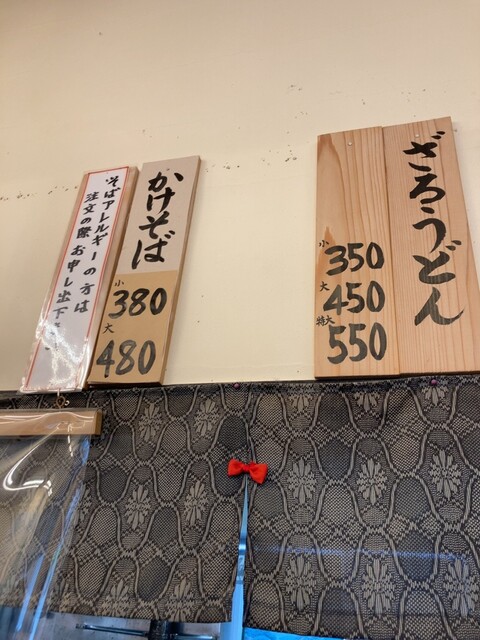 ざるうどん
小 350
大 450
特大 550
かけそば
小 380
大 480
そばアレルギーの方は
注文の際お申し出下